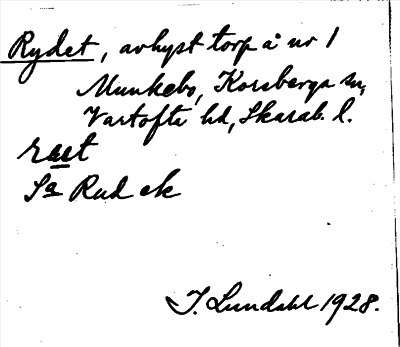 Rydet, avhyst torp å nr 1
Munkebo, Korsberga sn,
Vartofta hd, Skarab. l.
Sa Rud ek
J. Lundahl 1928.